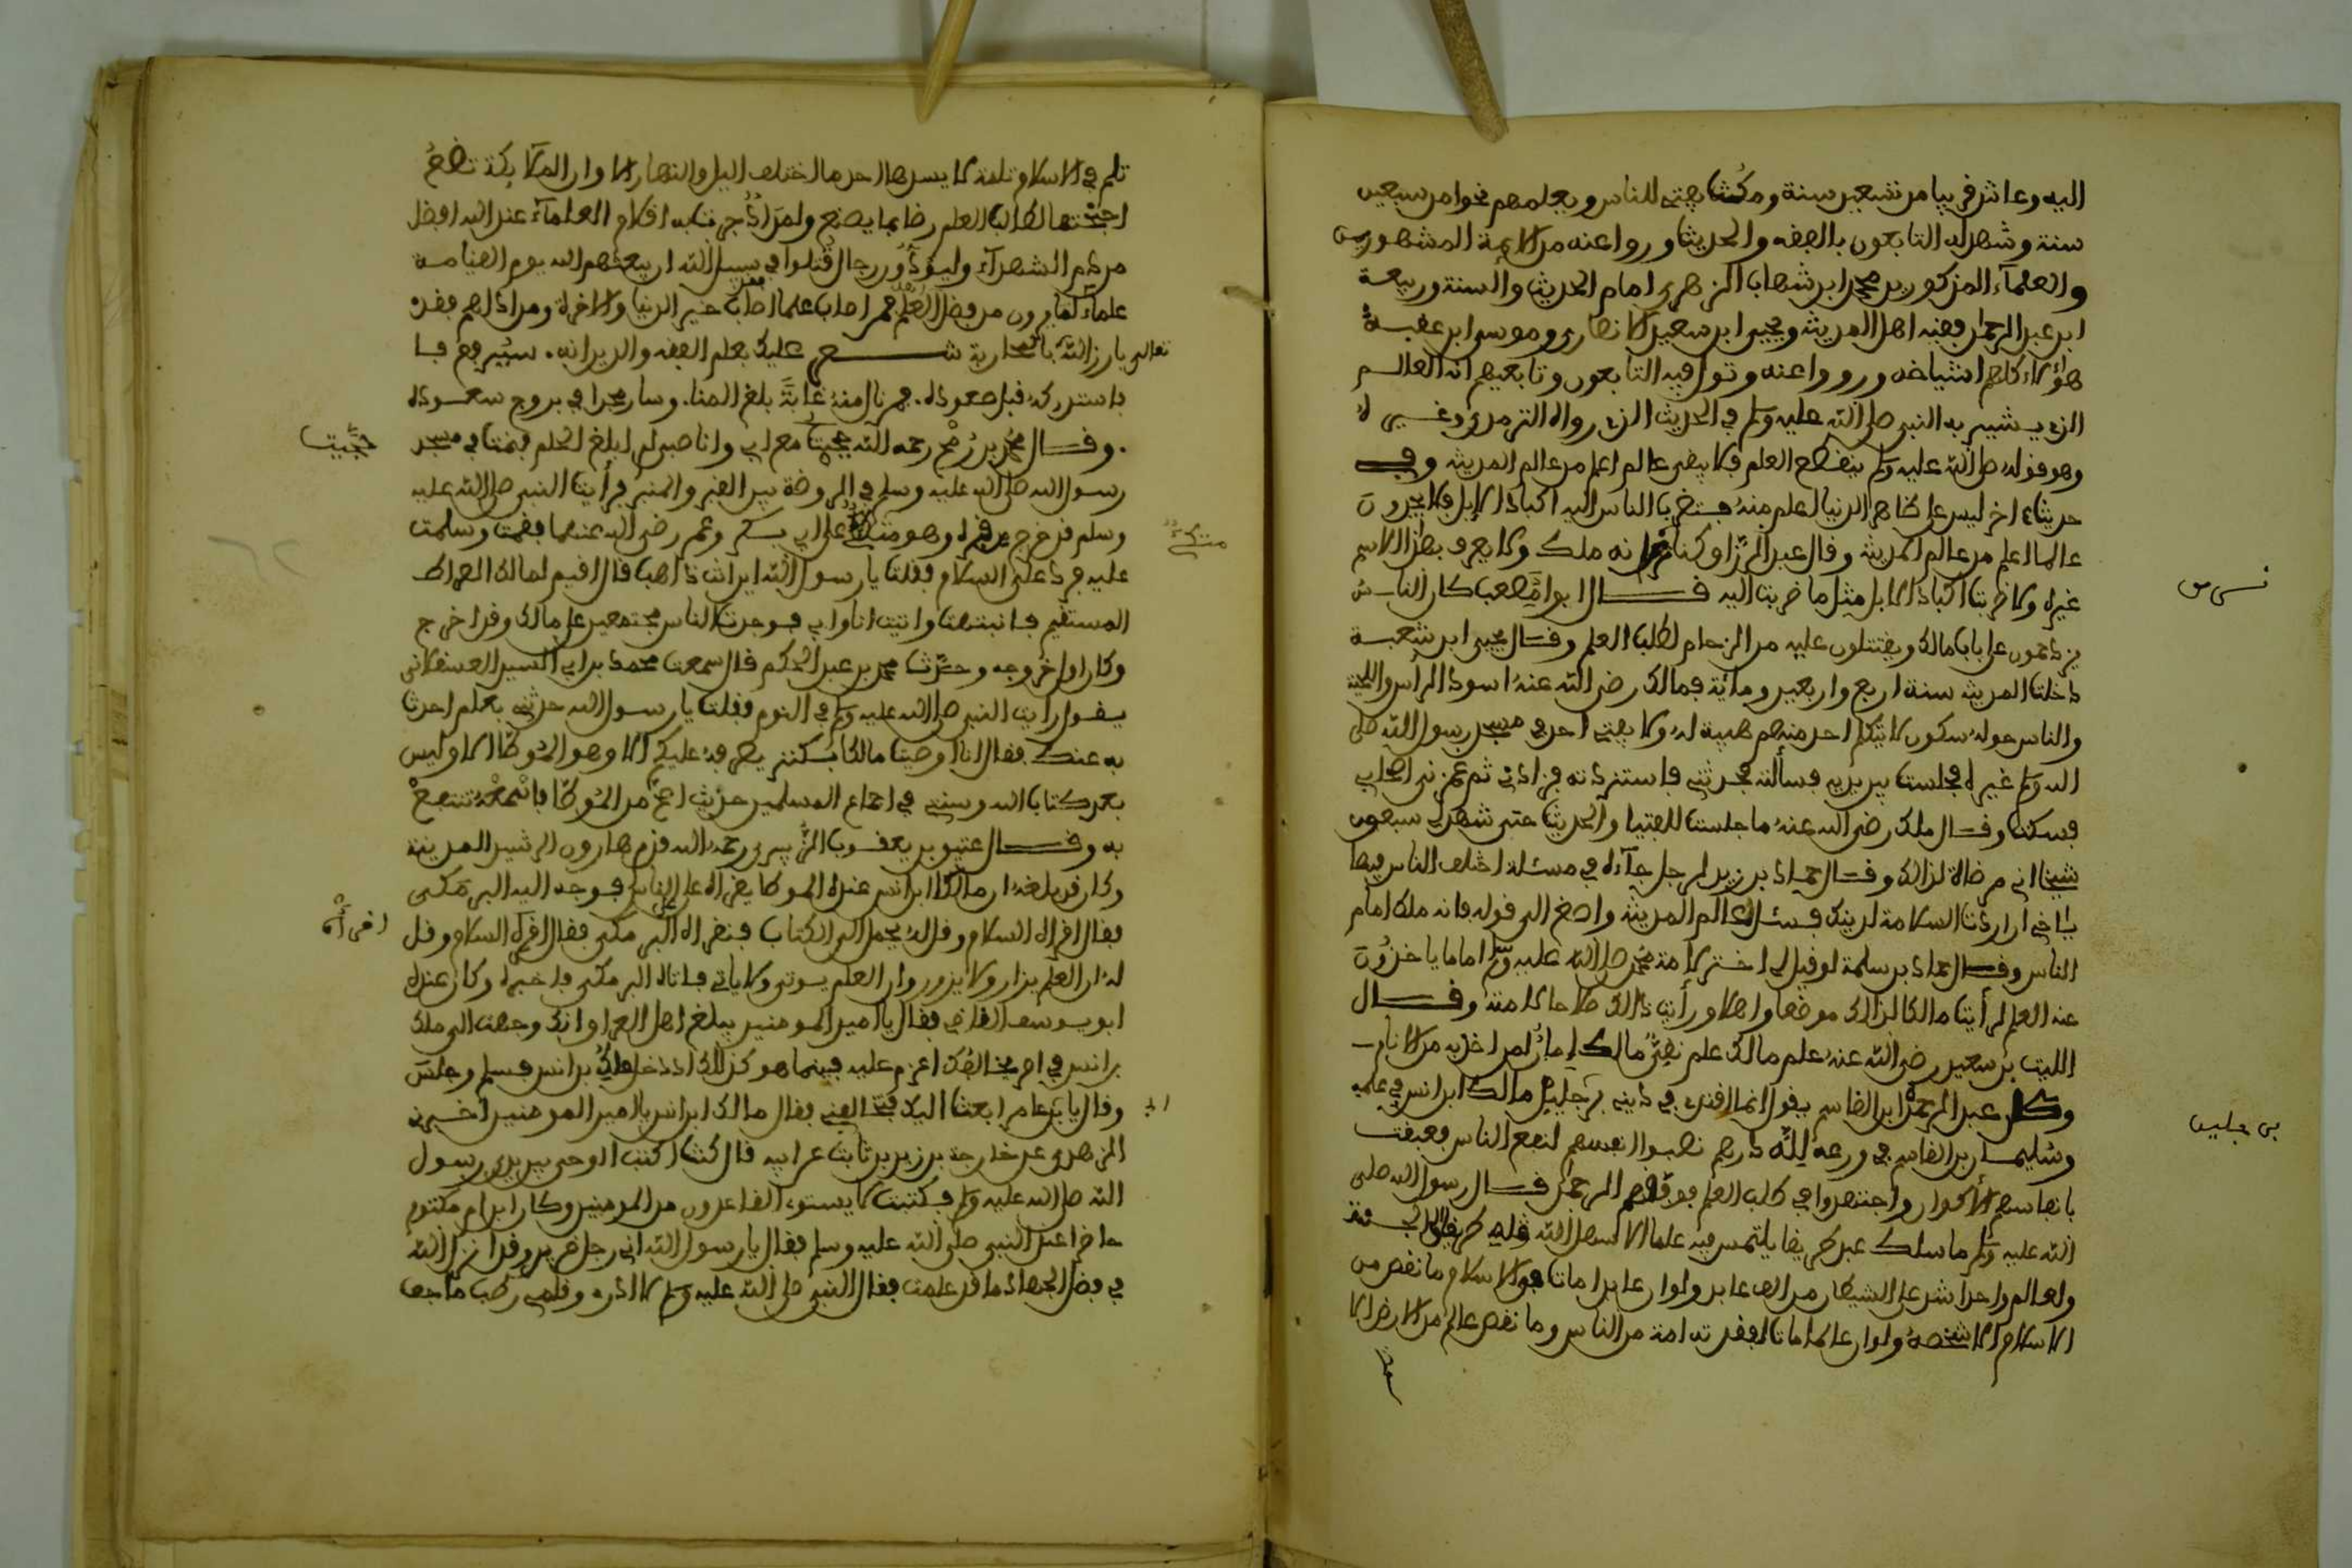 اليه وعاش قريبا من تسعين سنة ومكث يفتي للناس ويعلمهم نحوا من سبعين
سنة وشهد له التابعون بالفقه والحديث ورووا عنه من الايمة المشهورين
والعلماء المذكورين محمد ابن شهاب الزهري امام الحديث والسنة وربيعة
ابن عبد الرحمن فقيه اهل المدينة ويحيى ابن سعيد الانصاري وموسى ابن عقبة
هؤلاء كلهم اشياخه ورووا عنه وتول فيه التابعون وتابعيهم انه العالم
الذي يشير به النبي صلى الله عليه وسلم في الحديث الذي رواه الترمذي وغيره
وهو قوله صلى الله عليه وسلم ينقطع العلم فلا يبقى عالم اعلم من عالم المدينة وفي
حديث اخر ليس على ظاهر الدنيا اعلم منه فتضرب الناس اليه اكباد الابل فلا يجدون
عالما اعلم من عالم المدينة وقال عبد الرزاق وكنا نرى انه ملك ولا يعرف بهذا الاسم
غيره ولا ضربت اكباد الابل مثل ما ضربت اليه قال ابوا مصعب كان الناس
يزدحمون على باب مالك ويقتتلون عليه من الزحام لطلب العلم وقال يحيى ابن شعبة
دخلت المدينة سنة اربع واربعين ومائة فمالك رضي الله عنه اسود الراس واللحية
والناس حوله سكون لا يتكلم احد منهم هيبة له ولا يفتي احد في مسجد رسول الله صلى
الله وسلم غيره فجلست بين يديه فسألته فحدثني فاستزدته فزادني ثم غمزني اصحابي
فسكت وقال ملك رضي الله عنه ما جلست للفتيا والحديث حتى شهد لي سبعون
شيخا اني مرضاة لذالك وقال حماد بن زيد لرجل جاءه في مسئلة اختلف الناس فيها
يا اخي ان اردت السلامة لدينك فسئل عالم المدينة واصغ الى قوله فانه ملك امام
الناس وقال حماد بن سلمة لو قيل لي اختر لامة محمد صلى الله عليه وسلم اماما ياخذون
عنه العلم لرأيت مالكا لذالك موضعا واهلا ورأيت ذالك صلاحا للامة وقال
الليث بن سعيد رضي الله عنه علم مالك علم نقي مالك امان لمن اخذ به من الانام
وكان عبد الرحمن ابن القاسم يقول انما اقتدي في ديني برجلين مالك ابن انس في علمه
وسليمان بن القاسم في ورعه لله درهم نصبوا انفسهم لنفع الناس فعبقت
بانفاسهم الاكوان واجتهدوا في طلب العلم فوفقهم الرحمن قال رسول الله صلى
الله عليه وسلم ما سلك عبد طريقا يلتمس فيه علما الا سهل الله طريقا الى الجنة
ولعالم واحد اشد على الشيطان من الف عابد ولو ان عابدا مات في الاسلام ما نقص من
الاسلام الا شخصه ولو ان عالما مات لفقدته امة من الناس وما نقص عالم من الارض الا
ثلم في الاسلام ثلمة لا يسدها احد ما اختلف اليل والنهار الا وان الملائكة تضع
اجنحتها لطالب العلم رضا بما يصنع ولمداد جرت به اقلام العلماء عند الله افضل
من دم الشهداء وليودن رجال قتلوا في سبيل الله ان يبعثهم الله يوم القيامة
علماء لما يرون من فضل العلم فمن اصاب علما فقد اصاب خير الدنيا والاخرة ومن اذاهم فقد
تعالى بارز الله بالمحاربة شعر عليك بعلم الفقه والدين انه سيرفع فا
فاستدركه قبل صعوده فمن نال منه غاية بلغ المنا وسار مجدا في بروج سعوده
وقال محمد بن رمح رحمه الله حججت مع ابي وانا صبي لم ابلغ الحلم فنمت في مسجد
رسول الله صلى الله عليه وسلم في الروضة بين القبر والمنبر فرأيت النبي صلى الله عليه
وسلم قد خرج من قبره وهو متكئ على ابي بكر وعمر رضي الله عنهما فقمت وسلمت
عليه فرد علي السلام فقلت يا رسول الله اين انت ذاهب قال اقيم لمالك الصراط
المستقيم فانتبهت واتيت انا وابي فوجدت الناس مجتمعين على مالك وقد اخرج
وكان اول خروجه وحدث محمد بن عبد الحكم قال سمعت محمد بن ابي السير العسقلاني
يقول رايت النبي صلى الله عليه وسلم في النوم فقلت يا رسول الله حدثني بعلم احدث
به عنك فقال انا اوصيت مالكا بكنز يفرقه عليكم الا وهو الموطا الا وليس
بعد كتاب الله وسنتي في اجماع المسلمين حديث اصح من الموطا فاسمعه تنتفع
به وقال عتيق بن يعقوب الزبيري رحمه الله قدم هارون الرشيد المدينة
وكان قد بلغه ان مالك ابن انس عنده الموطا يقراه على الناس فوجه اليه البرمكي
فقال اقره السلام وقل له يحمل الي الكتاب فنقراه البرمكي فقال اقره السلام وقل
له ان العلم يزار ولا يزور وان العلم يوتى ولا ياتي فاتاه البرمكي فاخبره وكان عنده
ابو يوسف القاضي فقال يا امير المومنين يبلغ اهل العراق انك وجهت الى ملك
بن انس في امر فخالفك اعزم عليه فبينما هو كذلك اذ دخل ملك بن انس فسلم وجلس
وقال يا بن عامر ابعث اليك فتخالفني فقال مالك ابن انس يا امير المومنين اخبرني
الزهري عن خارجة بن زيد بن ثابت عن ابيه قال كنت اكتب الوحي بين يدي رسول
الله صلى الله عليه وسلم فكتبت لا يستوي القاعدون من المومنين وكان ابن ام مكتوم
حاضرا عند النبي صلى الله عليه وسلم فقال يا رسول الله اني رجل ضرير وقد انزل الله
في فضل الجهاد ما قد علمت فقال النبي صلى الله عليه وسلم لا ادري وقلمي رطب ما جف